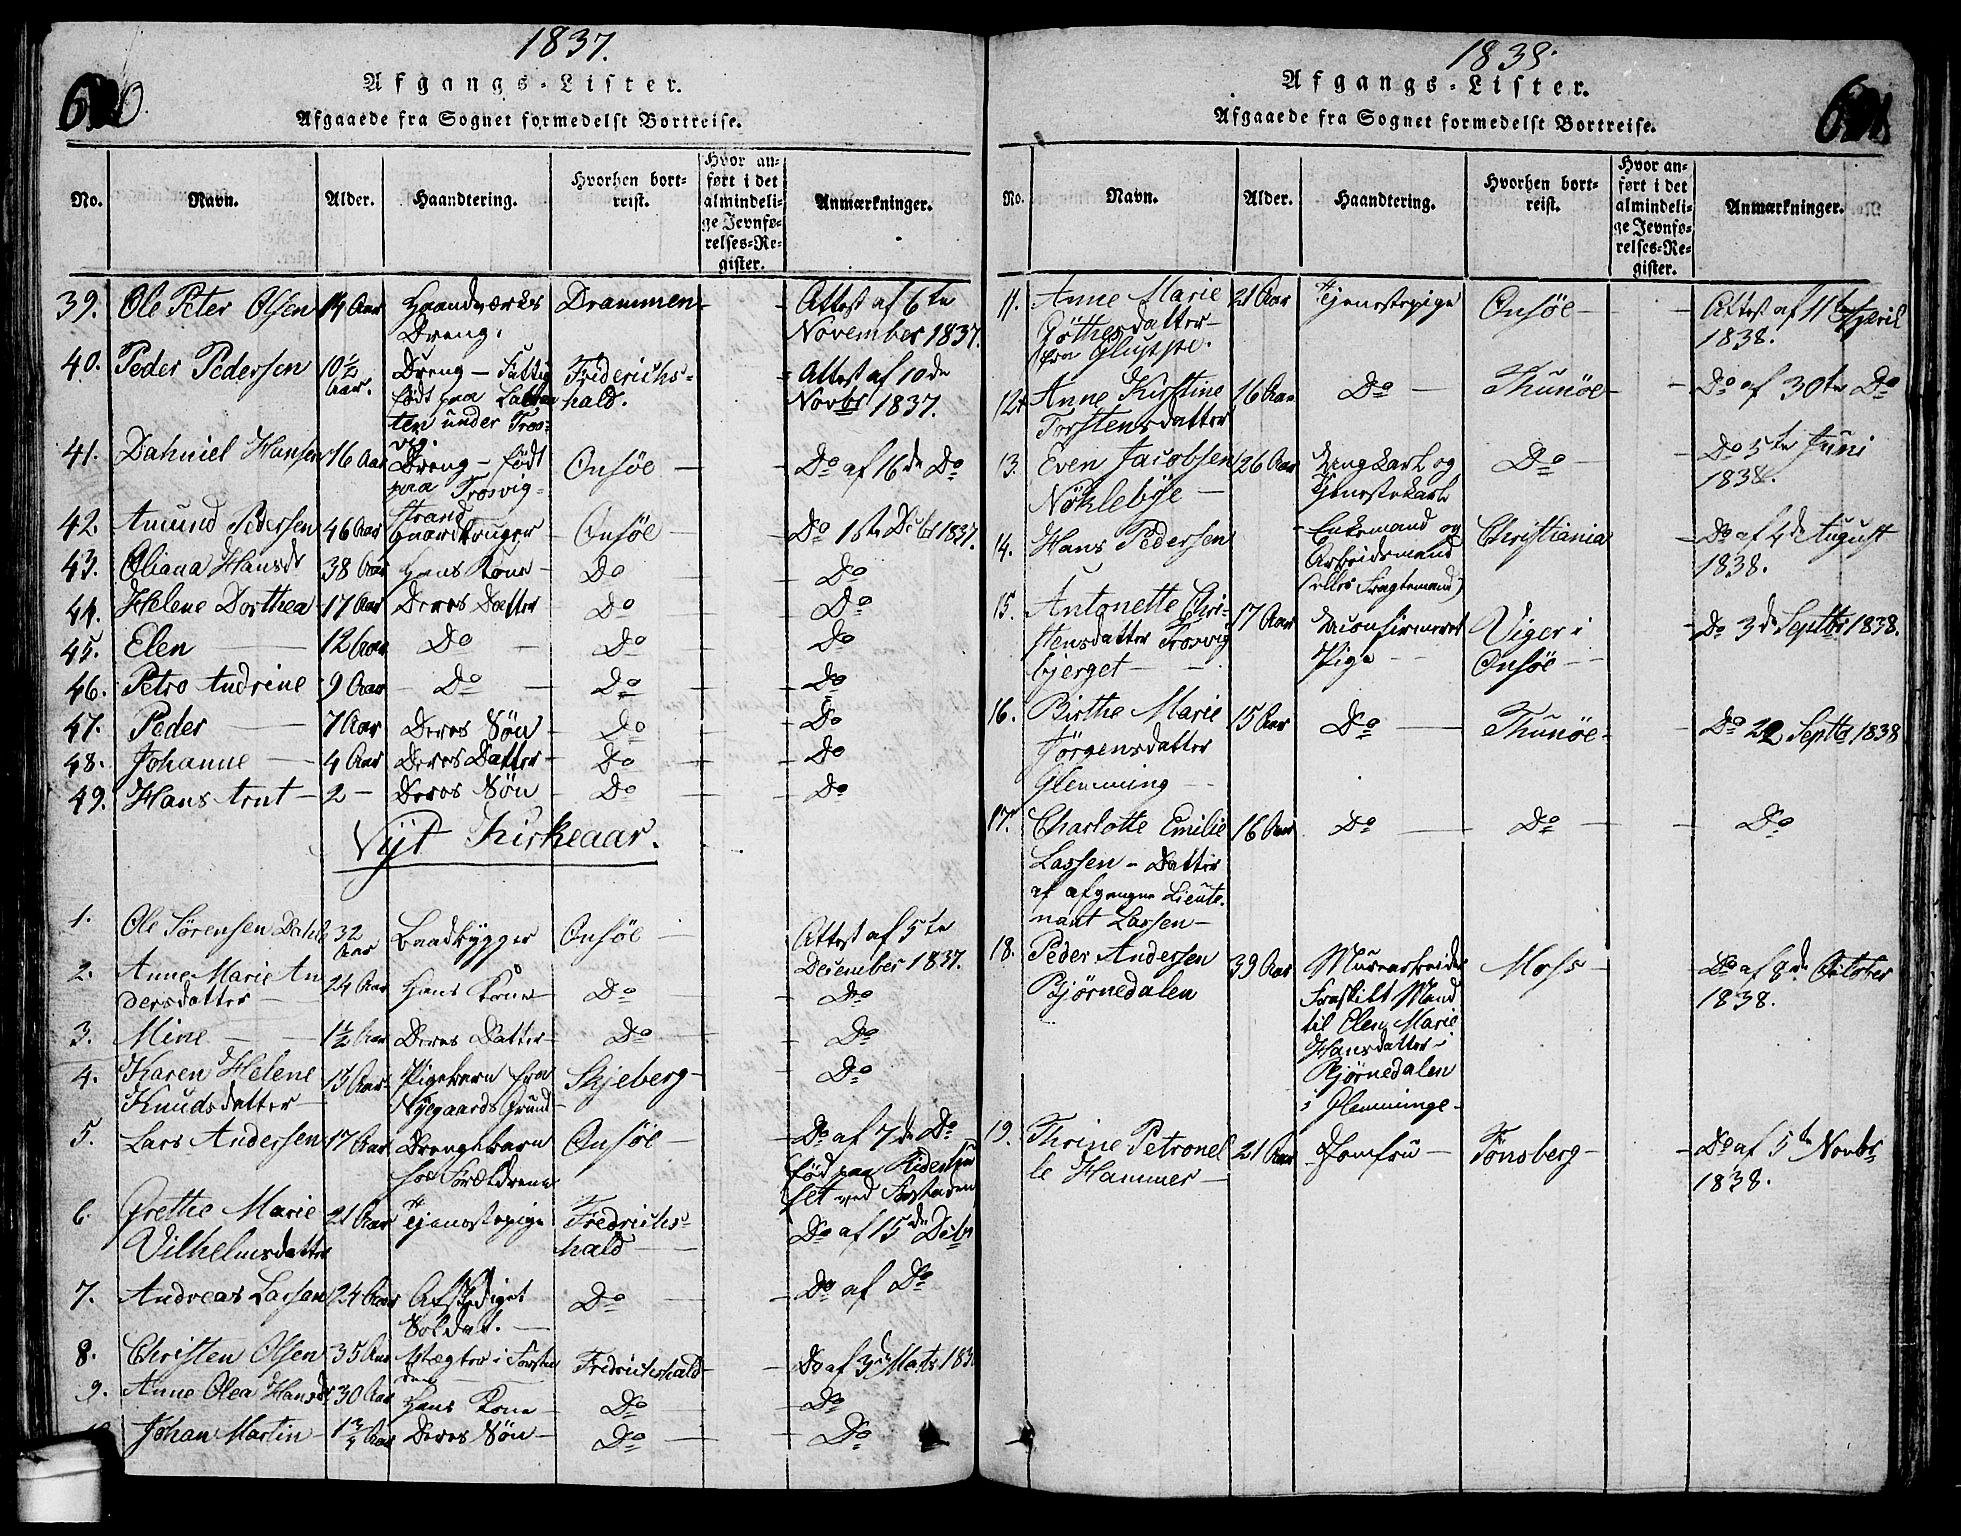 1837.
Afgangs-Lister.
Afgaaede fra Sognet formedelst Bortreise.
No. Navn. Alder. Haandtering. Hvorhen bortreist. Hvor anført i det almindelige Jevnførelses-Register. Anmærkninger.
39. Ole Peter Olsen 14 Aar Haandværks Drammen - - Attest af 6te
Dreng. November 1837.
40. Peder Pedersen 10½ Dreng - Fattig Frederichs- - Attest af 10de
Aar. født paa hald. Novbr 1837.
ten under Tros-
vig.
41. Dahniel Hansen 16 Aar Dreng - født Onsöe - - Do af 16de Do
paa Trosvig-
strand
42. Amund Pedersen 46 Aar Gaardbruger Onsöe - Do 1ste Decbr 1837.
43. Oliana Hansdr 38 Aar Hans Kone - Do - - Do
44. Helene Dorthea 17 Aar Deres Datter Do - - Do
45. Elen - 12 Aar Do - Do - Do
46. Petro Andrine 9 Aar - Do - Do - - Do
47. Peder - 7 Aar Deres Søn - Do - - Do
48. Johanne - 4 Aar Deres Datter - Do - - Do
49. Hans Arnt - 2 - Deres Søn - Do - - Do
Nyt Kirkeaar.
1. Ole Sörensen Dahl 32 Baadbygger Onsöe - Attest af 5te
Aar December 1837.
2. Anne Marie An 24 Aar Hans Kone - Do - - Do
dersdatter -
3. Mine - 1½ Aar Deres Datter - Do - - Do
4. Karen Helene 13 Aar Pigebarn fra Skjeberg - - Do
Knudsdatter - Nyegaards Grund -
5. Lars Andersen 17 Aar Drengebarn Onsöe - - Do af 7de Do
hos Forældrene fød paa
set ved Forstaden
6. Grethe Marie 21 Aar Tjenestepige Fredrichs- Do af 15de Decbr
Vilhelmsdatter hald -
7. Andreas Larsen 24 Aar Afskediget Do - - Do af Do
Soldat. -
8. Christen Olsen 35 Aar Vægter i Forsta Fredrichshald - - Do af 3de Marts 183
den
9. Anne Olea Hansdr 30 Aar Hans Kone - Do - - Do
Johan Martin - 1¾ Aar Deres Søn - Do - - Do
1838.
Afgangs-Lister.
Afgaaede fra Sognet formedelst Bortreise.
No. Navn. Alder. Haandtering. Hvorhen bortreist. Hvor anført i det almindelige Jevnførelses-Register. Anmærkninger.
11. Anne Marie 21 Aar Tjenestepige Onsöe - - Attest af 11te April
Göthesdatter - 1838.
fra
12. Anne Kirstine 16 Aar Do - Thunöe - - Do af 30te Do
Torstensdatter
13. Even Jacobsen 26 Aar Ungkarl og Do - - Do 5te Juni
Nöklebye - Tjenestekarl 1838.
14. Hans Pedersen - Enkemand og Christiania - Do af 4de August
Arbeidsmand 1838.
(eller Fragtemand)
15. Antonette Chri- 17 Aar Uconfirmeret Viger i - Do 3de Septbr 1838.
stensdatter Trosvig Pige - Onsöe -
bjerget -
16. Birthe Marie 15 Aar Do - Thunöe - - Do 22 Septbr 1838
Jörgensdatter
Glemming -
17. Charlotte Emilie 16 Aar Do - Do - - Do
Lassen - Datter
af afgangne Lieute-
nant Lassen -
18. Peder Andersen 39 Aar Murarbeider Moss - - Do af 8de October
Björnedalen Fraskilt Mand 1838.
til Elen Marie
Hansdatter i
Björnedalen
i Glemminge -
19. Thrine Petronel 21 Aar Jomfru - Tönsberg - - Do af 5te Novbr
le Hammer - 1838.